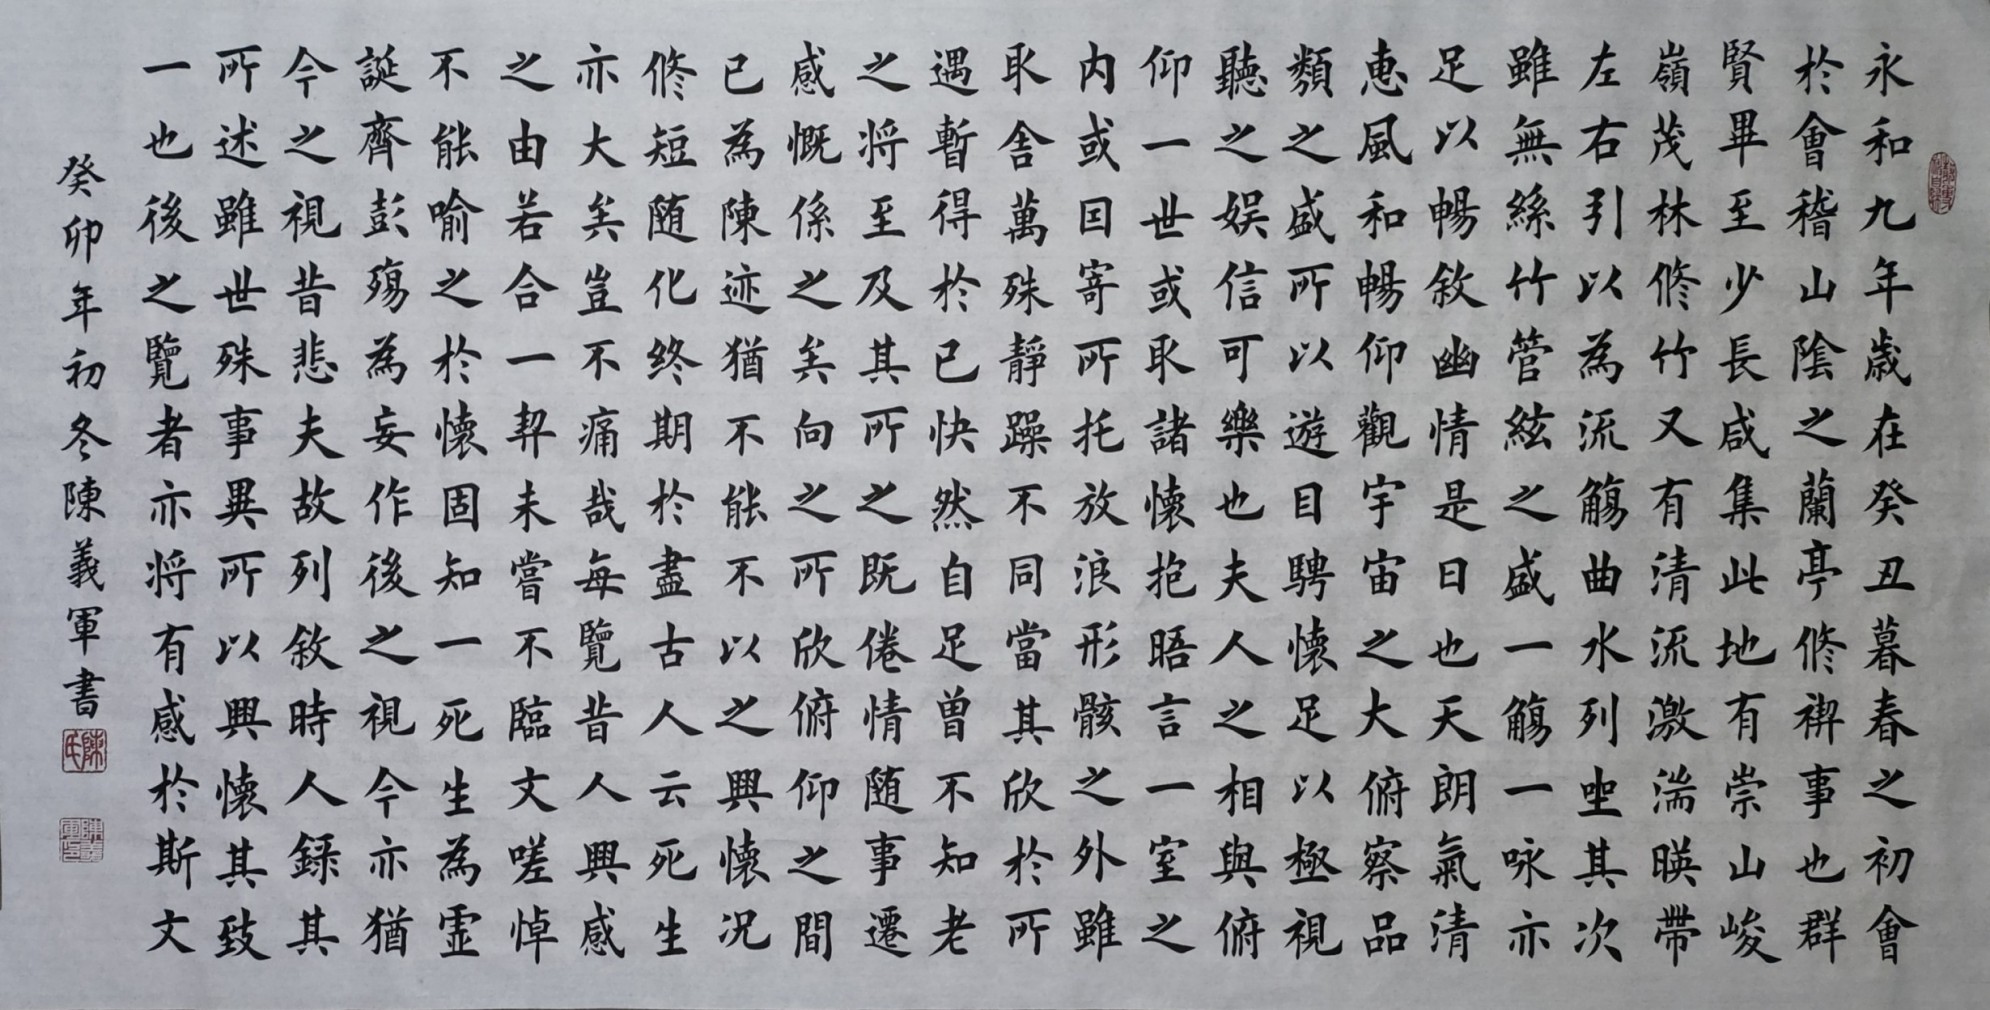 永和九年歲在癸丑暮春之初會
於會稽山陰之蘭亭修禊事也群
賢畢至少長咸集此地有崇山峻
嶺茂林修竹又有清流激湍暎帶
左右引以為流觴曲水列坐其次
雖無絲竹管絃之盛一觴一咏亦
足以暢敘幽情是日也天朗氣清
惠風和暢仰觀宇宙之大俯察品
類之盛所以遊目騁懷足以極視
聽之娛信可樂也夫人之相與俯
仰一世或取諸懷抱晤言一室之
內或因寄所托放浪形骸之外雖
取舍萬殊靜躁不同當其欣於所
遇暫得於己快然自足曾不知老
之將至及其所之既倦情隨事遷
感慨係之矣向之所欣俯仰之間
已為陳迹猶不能不以之興懷況
修短隨化終期於盡古人云死生
亦大矣豈不痛哉每覽昔人興感
之由若合一契未嘗不臨文嗟悼
不能喻之於懷固知一死生為虛
誕齊彭殤為妄作後之視今亦猶
今之視昔悲夫故列敘時人錄其
所述雖世殊事異所以興懷其致
一也後之覽者亦將有感於斯文
癸卯年初冬陳義軍書
陳氏